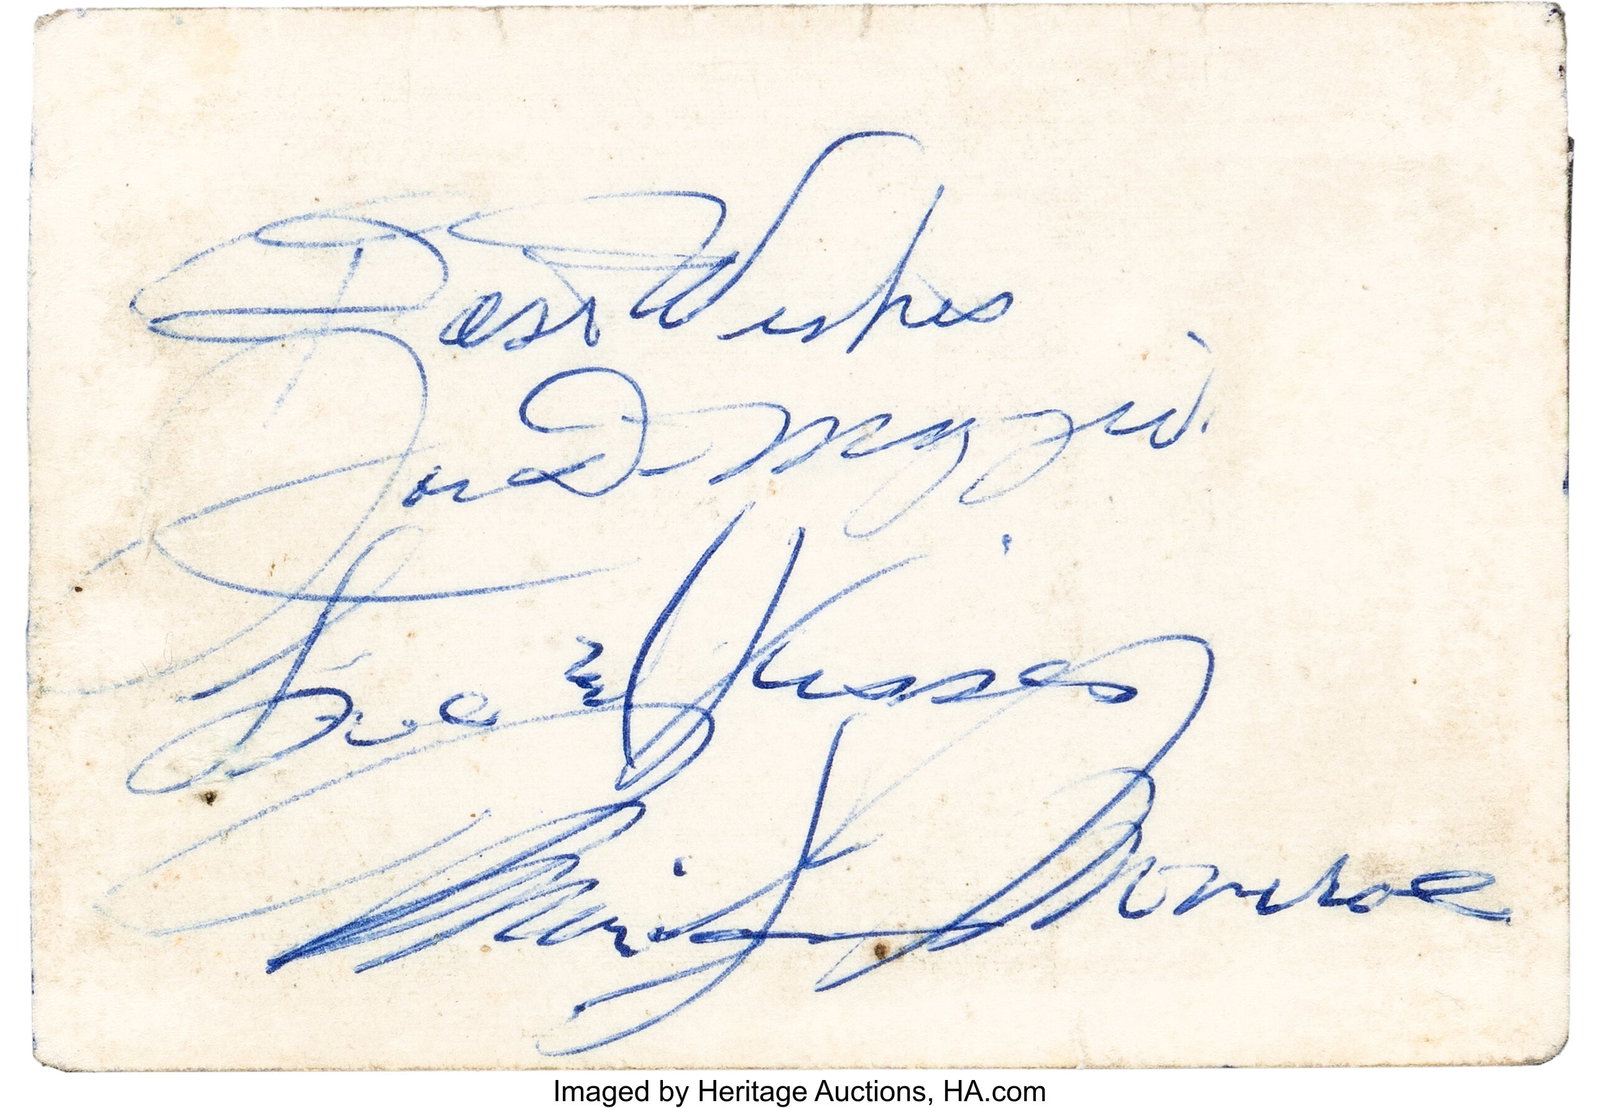 Best Wishes
Joe DiMaggio
Love & Kisses
Marilyn Monroe
Imaged by Heritage Auctions, HA.com